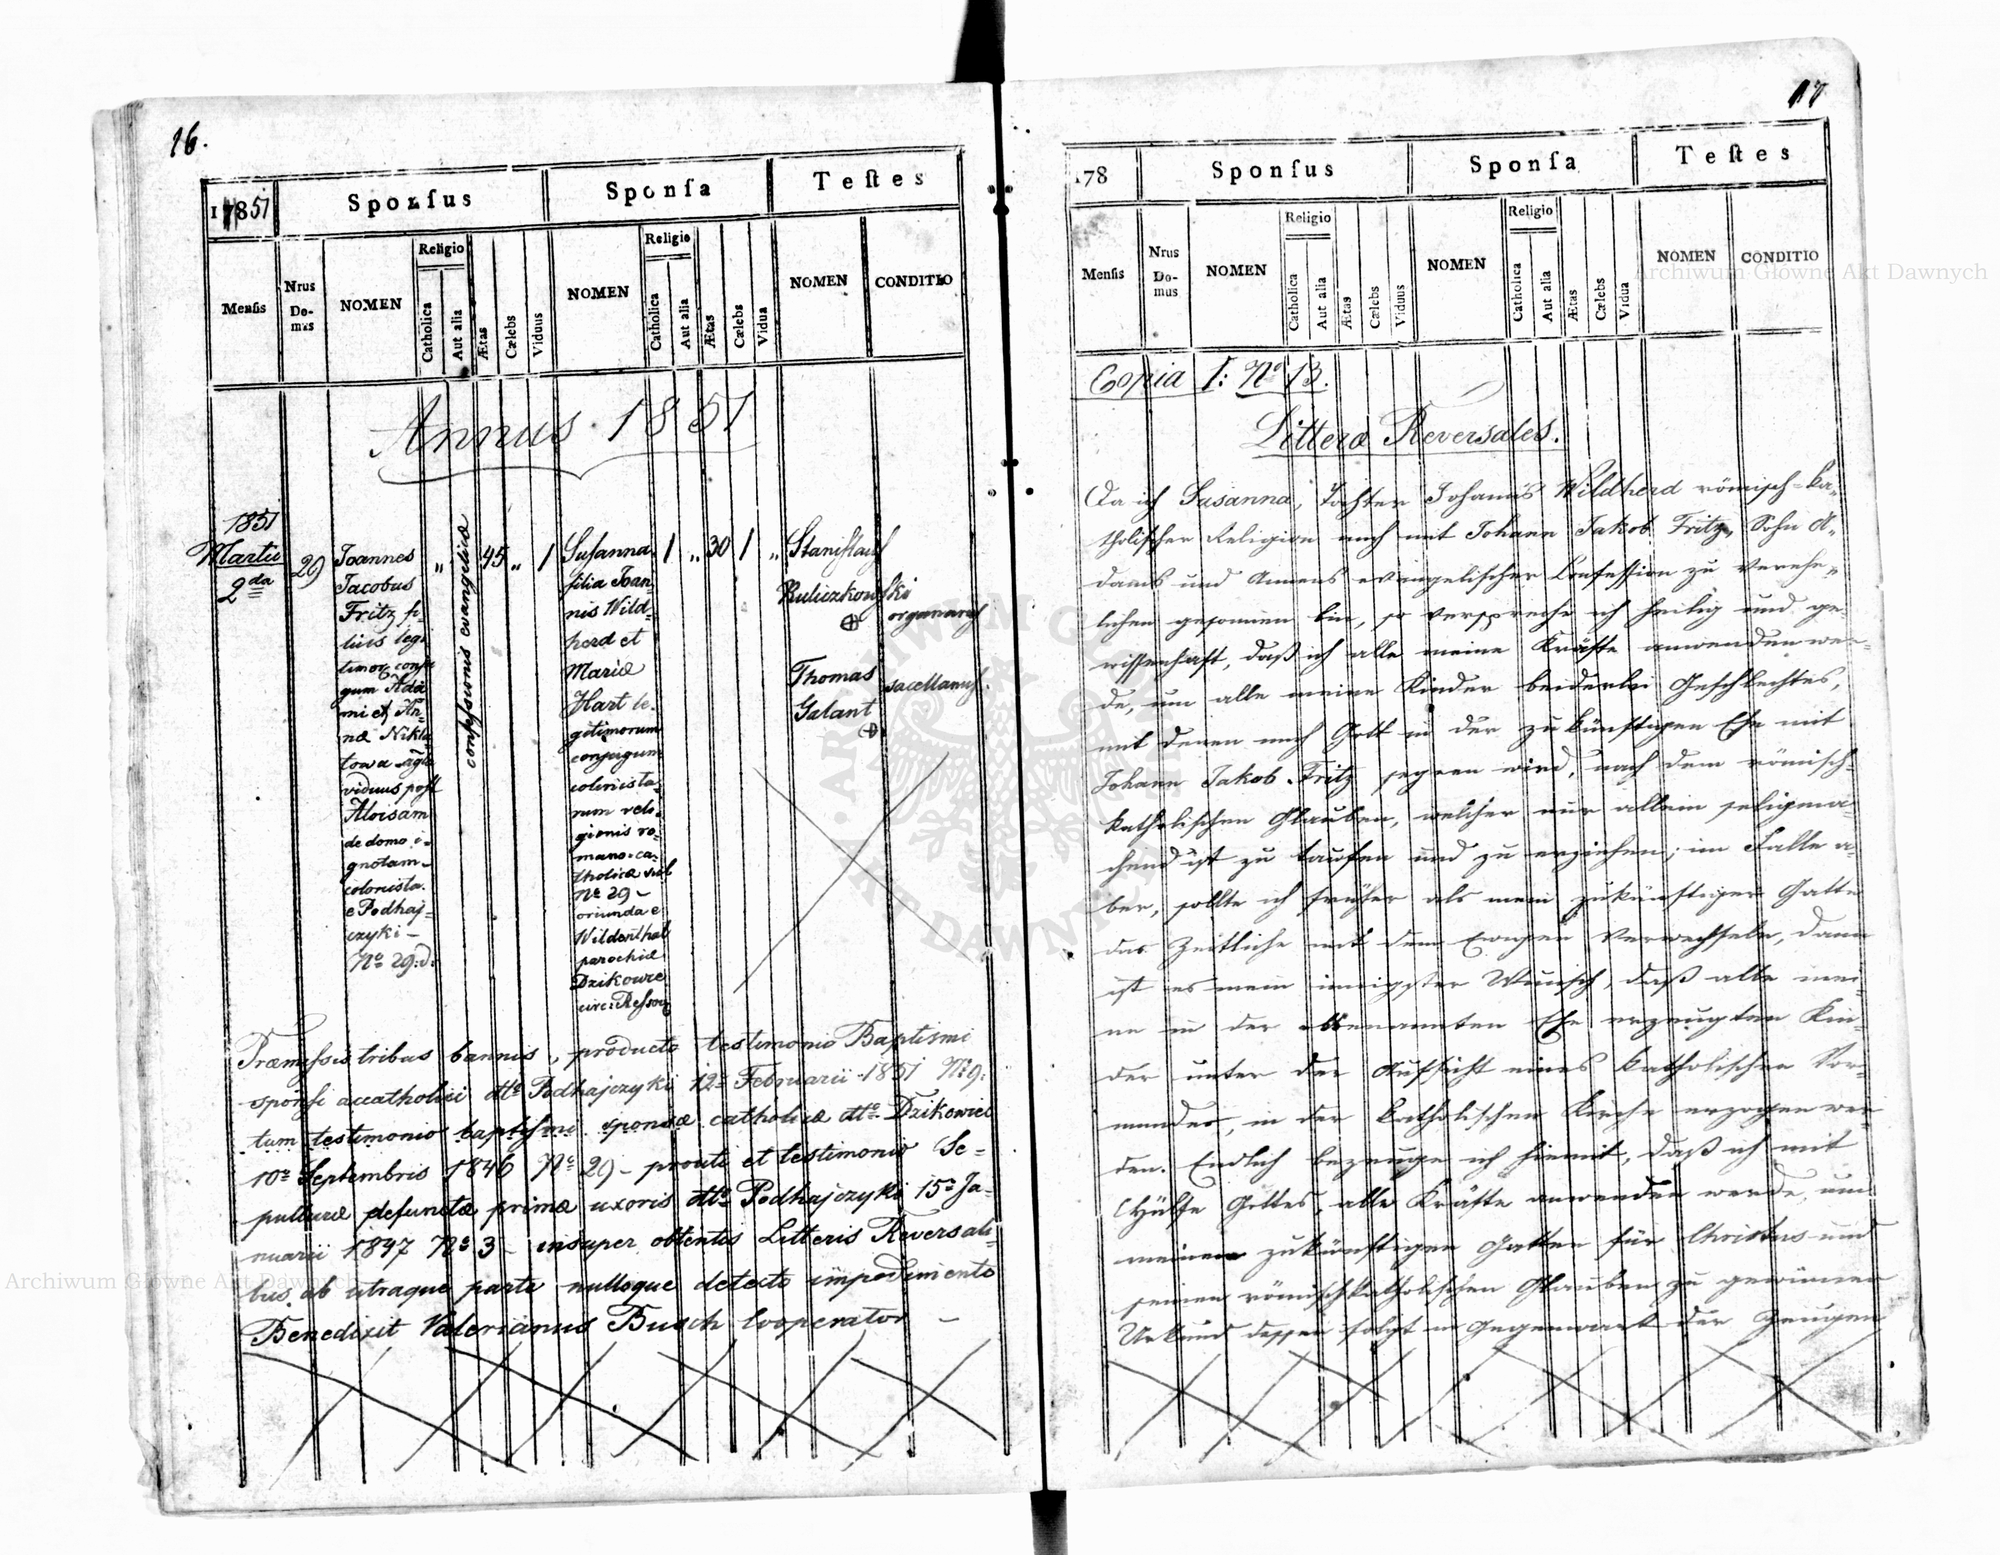 16.
17851
Sponſus
Sponſa
Teſtes
Menſis
Nrus Domus
NOMEN
Religio
Catholica
Aut alia
Ætas
Cælebs
Viduus
NOMEN
Religio
Catholica
Aut alia
Ætas
Cælebs
Vidua
NOMEN
CONDITIO
Annus 1851
1851
Martii
2da
29
Joannes
Jacobus
Fritz fi-
lius legi
timor: conju
gum Ada
mi et An-
næ Nikla
viduus post
Aloisam
de domo i-
gnotam
colonista
e Podhaj-
czyki
No 29:
„
confessionis evangelicæ
45
„
1
Susanna
filia Joan-
nis Wild-
herd et
Mariæ
Hart le-
gitimorum
conjugum
colonista-
rum reli-
gionis ro-
mano-ca-
tholicæ sub
No 29 -
oriunda e
Wildenthal
parochiæ
Dzikowce
circ: Ressov
1
„
30
1
„
Stanislaus
Ruliczkowski
organarius
Thomas
Galant
sacellanus.
Præmissis tribus bannis, producto testimonio Baptismi
sponsi accatholici dtto Podhajczyki 12a Februarii 1851 No 9:
tum testimonio baptismi sponsæ catholicæ dtto Dzikowiec
10a Septembris 1846 No 29 - prouti et testimonio Se-
pulturæ defunctæ primæ uxoris dtto Podhajczyki 15a Ja-
nuarii 1847 No 3 - insuper obtentis Litteris Reversali-
bus ab utraque parte nulloque detecto impedimento
Benedixit Valerianus Busch Cooperator -
17
178
Sponſus
Sponſa
Teſtes
Menſis
Nrus Domus
NOMEN
Religio
Catholica
Aut alia
Ætas
Cælebs
Viduus
NOMEN
Religio
Catholica
Aut alia
Ætas
Cælebs
Vidua
NOMEN
CONDITIO
Copia I: No 13.
Litteræ Reversales.
Da ich Susanna, Tochter Johann's Wildherd römisch-ka-
tholischer Religion mich mit Johann Jakob Fritz, Sohn A-
dams und Annens evangelischer Confession zu verehe-
lichen gesonnen bin, so verspreche ich heilig und ge-
wissenhaft, daß ich alle meine Kräfte anwenden wer-
de, um alle meine Kinder beiderlei Geschlechtes,
mit denen mich Gott in der zukünftigen Ehe mit
Johann Jakob Fritz segnen wird, nach dem römisch-
katholischen Glauben, welcher nur allein seligma-
chend ist zu taufen und zu erziehen; im Falle a-
ber, sollte ich früher als mein zukünftiger Gatte
das Zeitliche mit dem Ewigen verwechseln, dann
ist es mein innigster Wunsch, daß alle mei-
ne in der obbenannten Ehe erzeugten Kin-
der unter der Aufsicht eines katholischen Vor-
mundes, in der katholischen Kirche erzogen wer-
den. Endlich bezeuge ich hiemit, daß ich mit
Hülfe Gottes, alle Kräfte anwenden werde, um
meinen zukünftigen Gatten für Christus und
seinen römischkatholischen Glauben zu gewinnen
Urkund dessen folgt in Gegenwart der Zeugen
Archiwum Główne Akt Dawnych
Archiwum Główne Akt Dawnych
ARCHIWUM GŁÓWNE AKT DAWNYCH